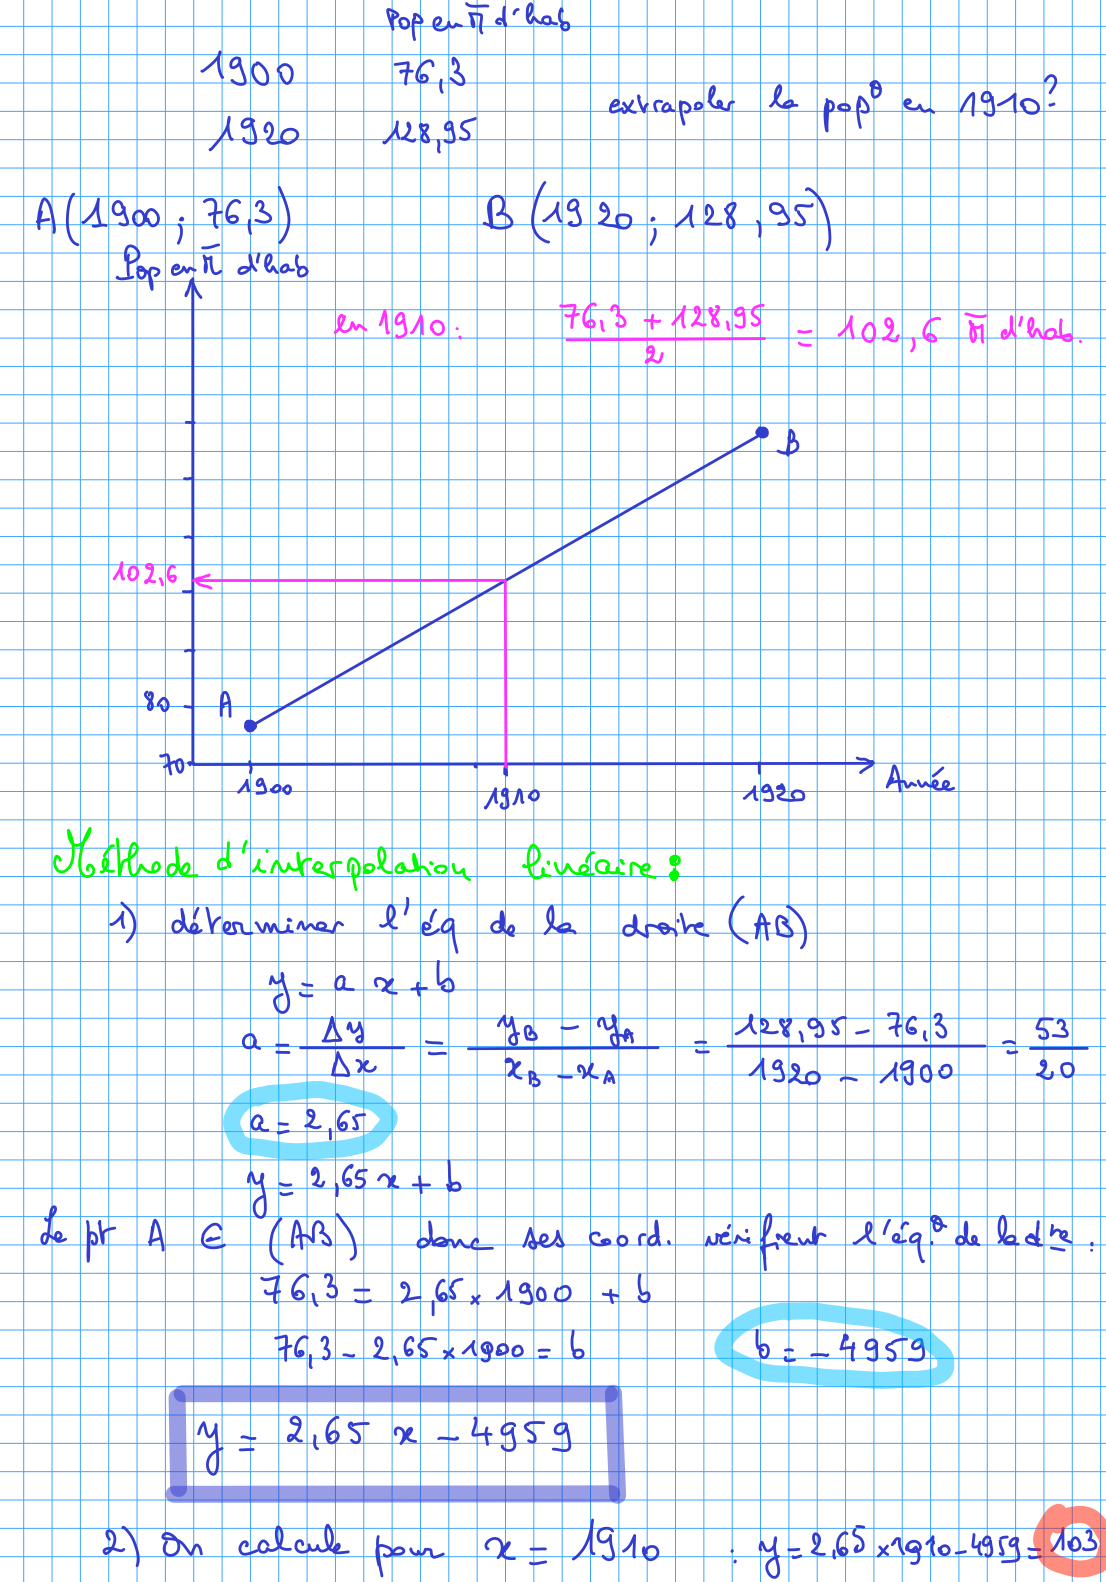 Pop en M̅ d'hab
1900 76,3
extrapoler la popᵒ en 1910?
1920 128,95
A(1900 ; 76,3) B(1920 ; 128,95)
Pop en M̅ d'hab
en 1910 : (76,3 + 128,95)/2 = 102,6 M̅ d'hab.
B
102,6
80 A
70
1900 1910 1920 Année
Méthode d'interpolation linéaire :
1) déterminer l'éq de la droite (AB)
y = a x + b
a = Δy/Δx = (yB - yA)/(xB - xA) = (128,95 - 76,3)/(1920 - 1900) = 53/20
a = 2,65
y = 2,65 x + b
Le pt A ∈ (AB) donc ses coord. vérifient l'éq.ᵒ de la dte.
76,3 = 2,65 × 1900 + b
76,3 - 2,65 × 1900 = b b = - 4959
y = 2,65 x - 4959
2) On calcule pour x = 1910 : y = 2,65 × 1910 - 4959 = 103